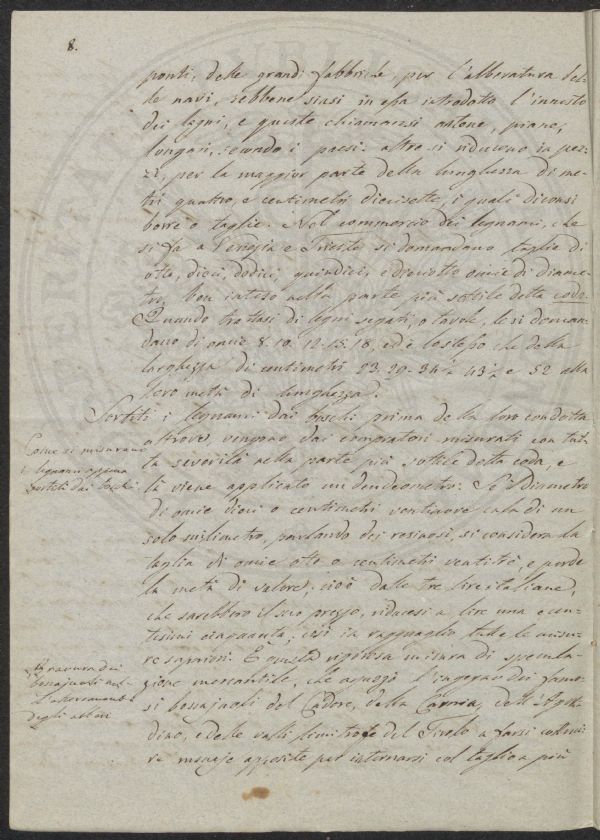 8.
ponti, delle grandi fabbriche, per l'alberatura del-
le navi, sebbene siasi in essa introdotto l'innesto
dei legni, e queste chiamansi antene, piane,
longari, secondo i paesi: altre si riducono in pez-
zi, per la maggior parte della lunghezza di me-
tri quattro, e centimetri diecisette, i quali diconsi
borre o taglie. Nel commercio dei legnami, che
si fa a Venezia e Trieste si domandano taglie di
otto, dieci, dodici quindici, e dieciotto oncie di diame-
tro, ben inteso nella parte più sottile detta coda.
Quando trattasi di legni segati, o tavole, le si doman-
dano di oncie 8. 10. 12. 15. 18, ed è lo stesso che della
larghezza di centimetri 23. 29. 34½ 43½ e 52 alla
loro metà di lunghezza.
Sortiti i legnami dai boschi prima della loro condotta
altrove, vengono dai compratori misurati con tut-
ta severità nella parte più sottile detta coda, e
li viene applicato un dendrometro. Se il diametro
di oncie dieci o centimetri ventinove cala di un
solo millimetro, parlando dei resinosi, si considera la
taglia di oncie otto o centimetri ventitrè, e perde
la metà di valore, cioè dalle tre lire italiane,
che sarebbero il suo prezzo, riducesi a lire una e cen-
tesimi cinquanta, così in ragguaglio tutte le misu-
re superiori. È questa rigorosa misura di specula-
zione mercantile, che aguzzò l'ingegno dei famo-
si boscajuoli del Cadore, della Carnia, dell'Agor-
dino, e delle valli limitrofe del Tirolo a farsi costrui-
re manaje apposite per internarsi col taglio a più
Come si misurano
i legnami appena
sortiti dai boschi.
Bravura dei
boscajuoli nel-
l'atterramento
degli alberi